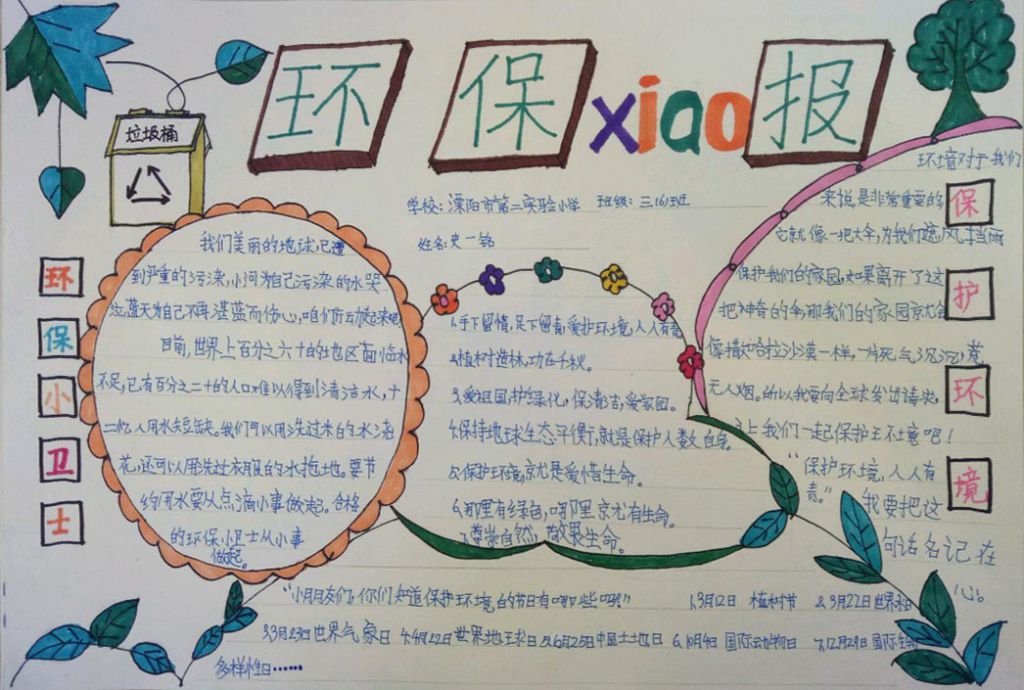 环保xiao报
垃圾桶
学校：溧阳市第二实验小学 班级：三（6）班
姓名：史一铭
环保小卫士
我们美丽的地球，已遭
到严重的污染，小河为自己污染的水哭
泣，蓝天为自己不再湛蓝而伤心，咱们行动起来吧
目前，世界上百分之六十的地区面临水
不足，已有百分之二十的人口难以得到清洁水，十
二亿人用水短缺。我们可以用洗过米的水浇
花，还可以用洗过衣服的水拖地。要节
约用水要从点滴小事做起。合格
的环保小卫士从小事
做起。
1.手下留情，足下留青，爱护环境，人人有责
2.植树造林，功在千秋。
3.爱祖国，护绿化，保清洁，爱家园。
4.保持地球生态平衡，就是保护人类自身
5.保护环境，就是爱惜生命。
6.哪里有绿色，哪里就有生命。
7.尊崇自然，敬畏生命。
环境对于我们
来说，是非常重要的
它就像一把大伞，为我们遮风挡雨
保护我们的家园，如果离开了这
把神奇的伞，那我们的家园就会
像撒哈拉沙漠一样，一片死气沉沉，荒
无人烟。所以我要向全球发出请求，
让我们一起保护王不土境吧！
“保护环境，人人有
责。”我要把这
句话名记在
心。
保护环境
“小朋友们，你们知道保护环境的节日有哪些吗？” 1.3月12日 植树节 2.3月22日世界水日
3.3月23日世界气象日 4.4月22日世界地球日 5.6月25日中国土地日 6.10月4日 国际动物日 7.12月29日 国际生物
多样性日……